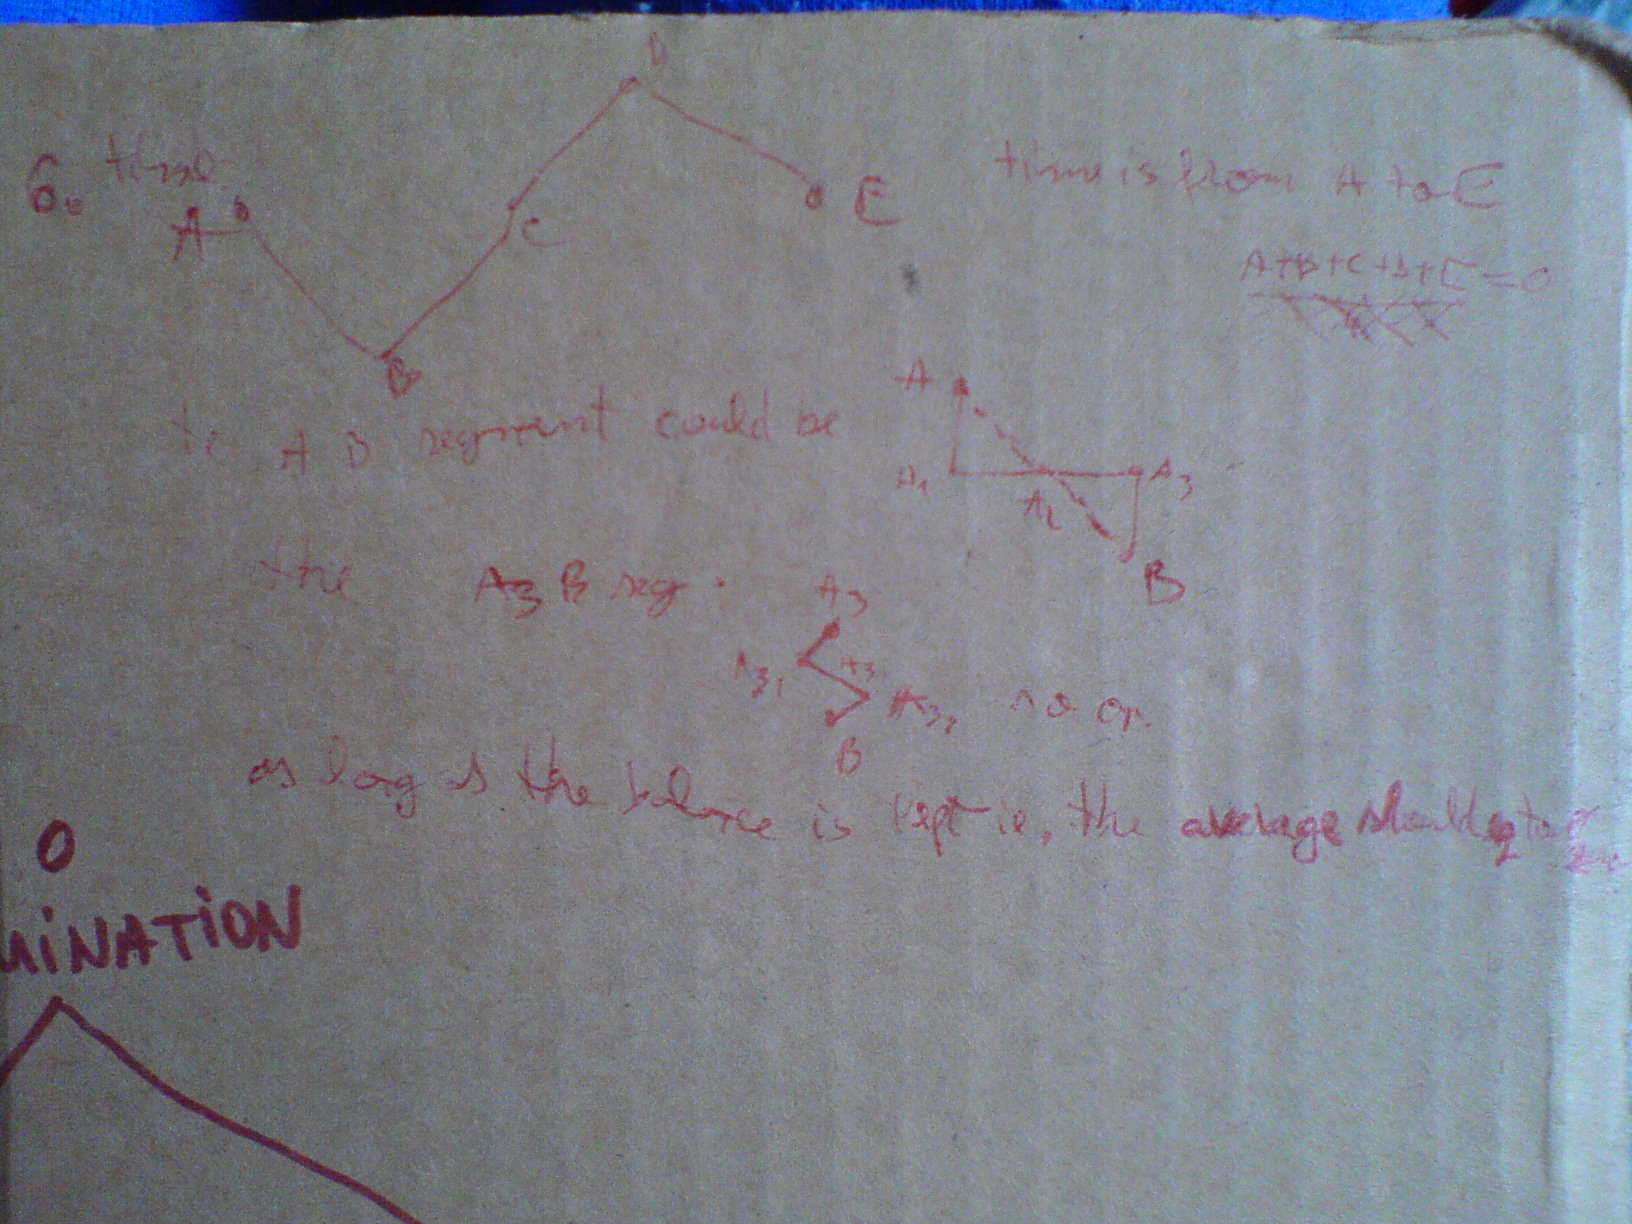 D
6. time
A
E
time is from A to E
C
A+B+C+D+E=0
B
A
A B segment could be
A1
A2
A3
B
the A3 B seg.
A3
A31
A3
A32
so on
B
as long as the balance is kept ie, the average should eq to
zero
0
MINATION